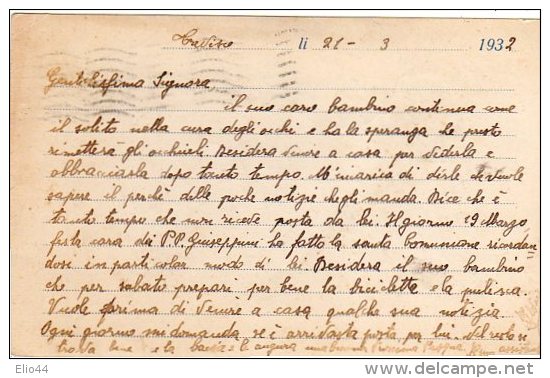 Treviso li 21 - 3 1932
Gentilissima Signora,
il suo caro bambino continua come
il solito nella cura degli occhi e ha la speranza che presto
rimetterà gli occhieli. Desidera venire a casa per vederla e
abbracciarla dopo tanto tempo. M'incarica di dirle che vuole
sapere il perchè delle poche notizie che gli manda. Dice che è
tanto tempo che non riceve posta da lei. Il giorno 19 Marzo,
festa cara dei P.P. Giuseppini ha fatto la santa comunione ricordan
dosi in particolar modo di lei. Desidera il suo bambino
che per sabato prepari per bene la bicicletta e la pulisca.
Vuole prima di venire a casa qualche sua notizia.
Ogni giorno mi domanda se è arrivata posta per lui. Del resto si
trova bene e la bacia e le augura una buona
Elio44
delcampe.net